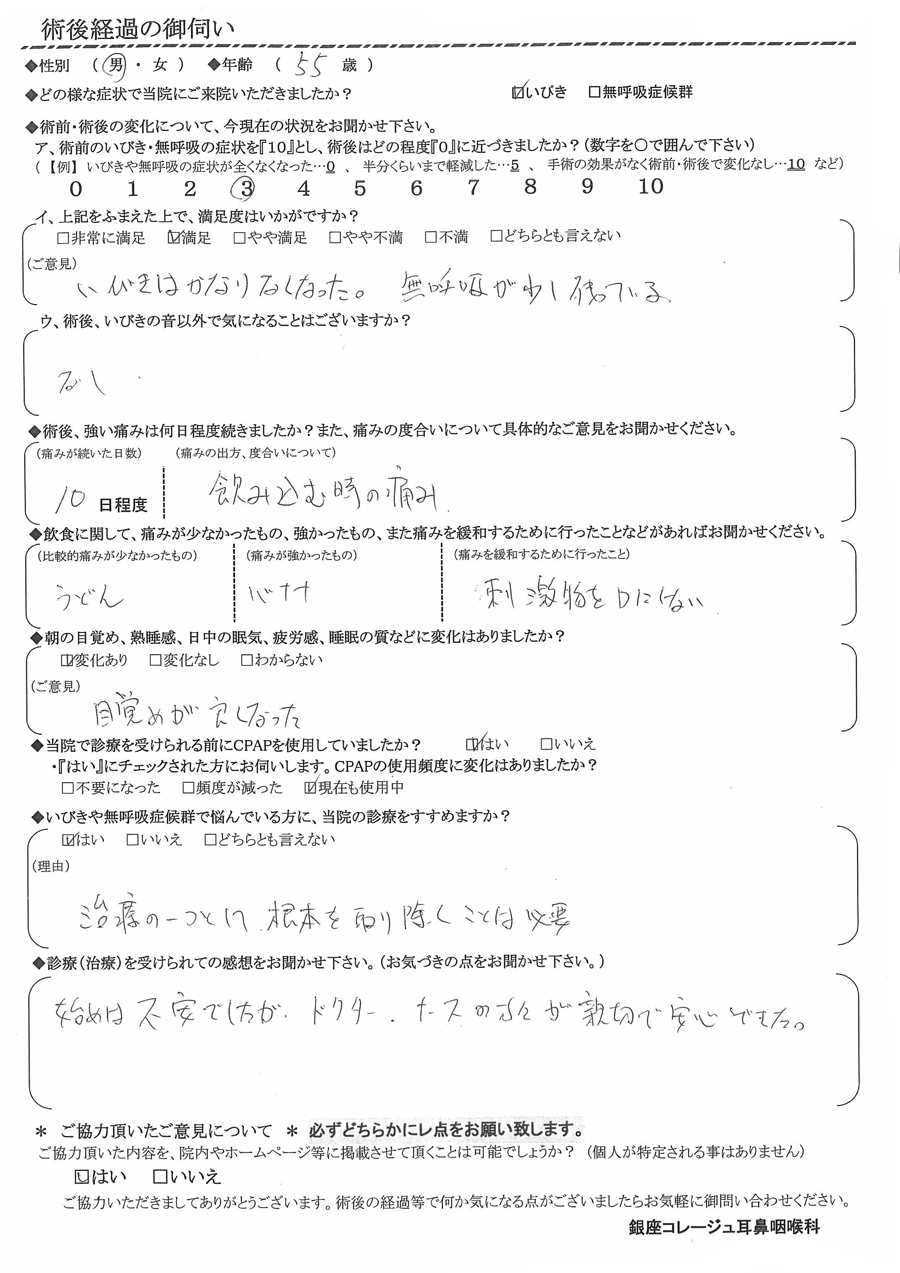 術後経過の御伺い
◆性別 ( 男 ・ 女 ) ◆年齢 ( 55 歳 )
◆どの様な症状で当院にご来院いただきましたか？ ☑いびき □無呼吸症候群
◆術前・術後の変化について、今現在の状況をお聞かせ下さい。
ア、術前のいびき・無呼吸の症状を『10』とし、術後はどの程度『0』に近づきましたか？(数字を〇で囲んで下さい)
(【例】いびきや無呼吸の症状が全くなくなった…0 、 半分くらいまで軽減した…5 、 手術の効果がなく術前・術後で変化なし…10 など)
0 1 2 3 4 5 6 7 8 9 10
イ、上記をふまえた上で、満足度はいかがですか？
□非常に満足 ☑満足 □やや満足 □やや不満 □不満 □どちらとも言えない
(ご意見)
いびきはかなりなくなった。 無呼吸が少し残っている
ウ、術後、いびきの音以外で気になることはございますか？
なし
◆術後、強い痛みは何日程度続きましたか？また、痛みの度合いについて具体的なご意見をお聞かせください。
(痛みが続いた日数) (痛みの出方、度合いについて)
10 日程度 飲み込む時の痛み
◆飲食に関して、痛みが少なかったもの、強かったもの、また痛みを緩和するために行ったことなどがあればお聞かせください。
(比較的痛みが少なかったもの) (痛みが強かったもの) (痛みを緩和するために行ったこと)
うどん バナナ 刺激物を口にしない
◆朝の目覚め、熟睡感、日中の眠気、疲労感、睡眠の質などに変化はありましたか？
☑変化あり □変化なし □わからない
(ご意見)
目覚めが良くなった
◆当院で診療を受けられる前にCPAPを使用していましたか？ ☑はい □いいえ
・『はい』にチェックされた方にお伺いします。CPAPの使用頻度に変化はありましたか？
□不要になった □頻度が減った ☑現在も使用中
◆いびきや無呼吸症候群で悩んでいる方に、当院の診療をすすめますか？
☑はい □いいえ □どちらとも言えない
(理由)
治療の一つとして 根本を取り除くことは必要
◆診療(治療)を受けられての感想をお聞かせ下さい。(お気づきの点をお聞かせ下さい。)
始めは不安でしたが、ドクター、ナースの方々が親切で安心できた。
＊ ご協力頂いたご意見について ＊ 必ずどちらかにレ点をお願い致します。
ご協力頂いた内容を、院内やホームページ等に掲載させて頂くことは可能でしょうか？ (個人が特定される事はありません)
☑はい □いいえ
ご協力いただきましてありがとうございます。術後の経過等で何か気になる点がございましたらお気軽に御問い合わせください。
銀座コレージュ耳鼻咽喉科